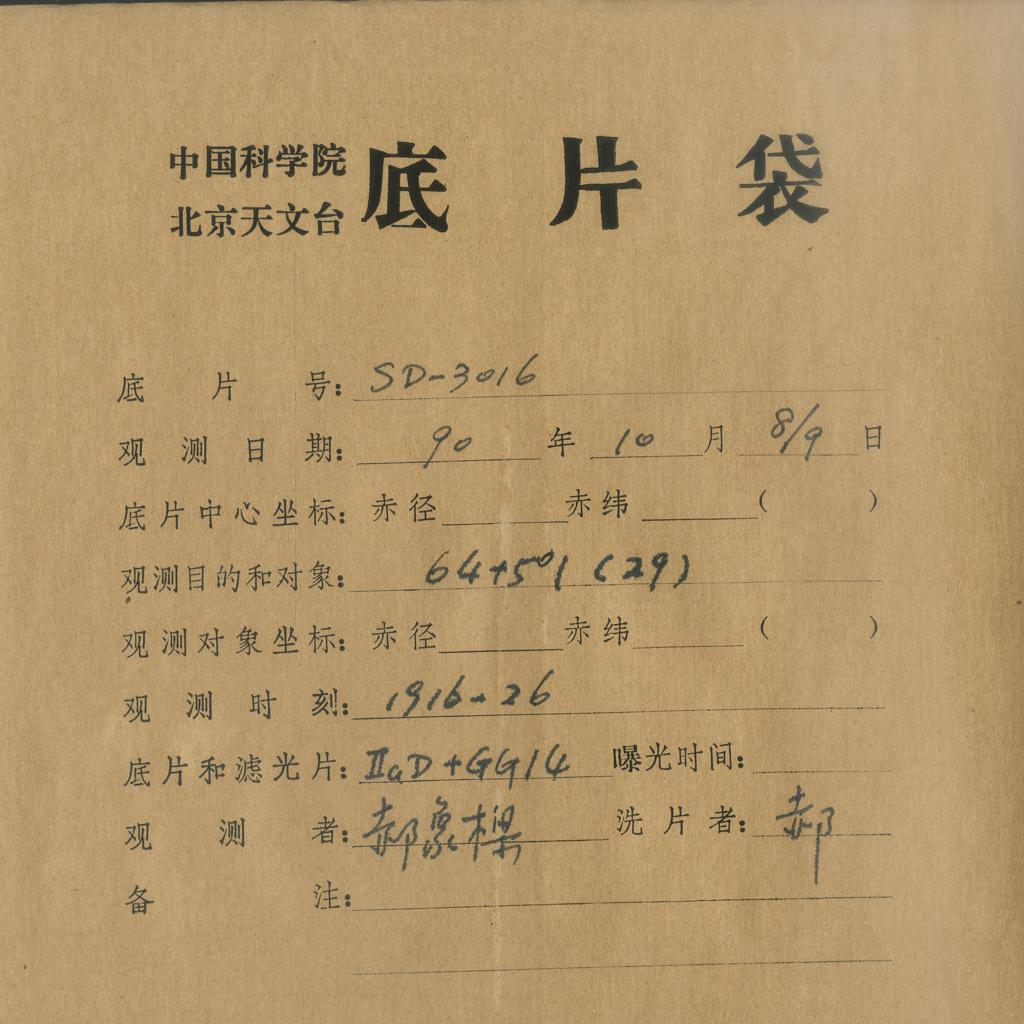 中国科学院
北京天文台
底片袋
底片号: SD-3016
观测日期: 90 年 10 月 8/9 日
底片中心坐标: 赤径 赤纬 ( )
观测目的和对象: 64+501 (29)
观测对象坐标: 赤径 赤纬 ( )
观测时刻: 1916-26
底片和滤光片: IIaD+GG14 曝光时间:
观测者: 郝象樑 洗片者: 郝
备注: